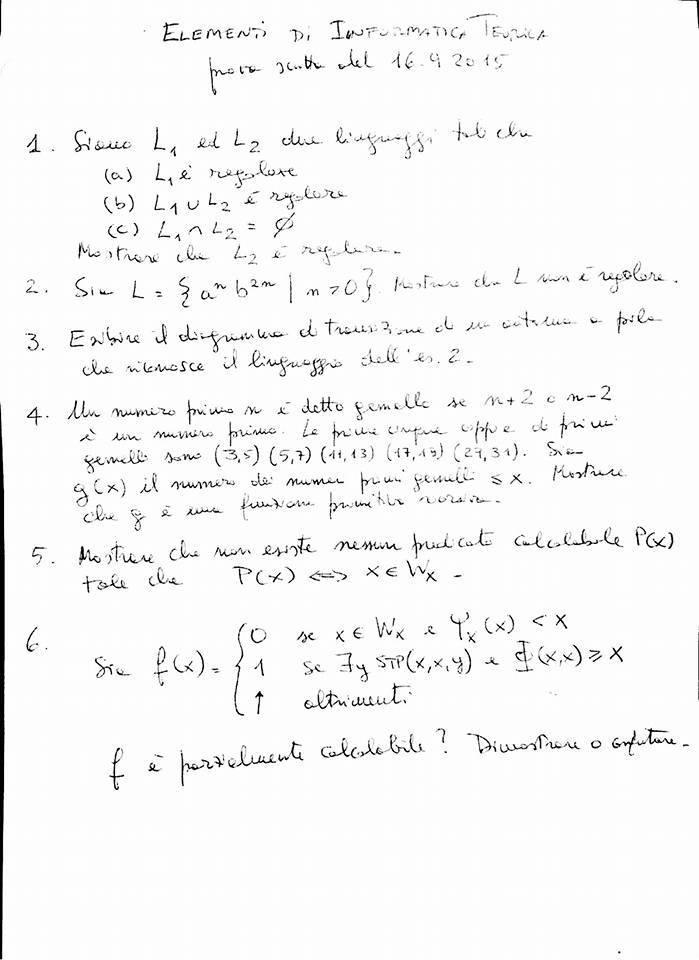 ELEMENTI DI INFORMATICA TEORICA
prova scritta del 16.9 2015
1. Siano L₁ ed L₂ due linguaggi tali che
(a) L₁ è regolare
(b) L₁ ∪ L₂ è regolare
(c) L₁ ∩ L₂ = ∅
Mostrare che L₂ è regolare.
2. Sia L = {aⁿ b²ⁿ | n > 0}. Mostrare che L non è regolare.
3. Esibire il diagramma di transizione di un automa a pila
che riconosce il linguaggio dell'es. 2.
4. Un numero primo n è detto gemello se n+2 o n-2
è un numero primo. Le prime cinque coppie di primi
gemelli sono (3,5) (5,7) (11,13) (17,19) (29,31). Sia
g(x) il numero dei numeri primi gemelli ≤ x. Mostrare
che g è una funzione primitiva ricorsiva.
5. Mostrare che non esiste nessun predicato calcolabile P(x)
tale che P(x) ⟺ x ∈ Wₓ.
6. Sia f(x) = { 0 se x ∈ Wₓ e Ψₓ(x) < x
1 se ∃y STP(x,x,y) e Φ(x,x) ≥ x
↑ altrimenti
f è parzialmente calcolabile? Dimostrare o confutare.